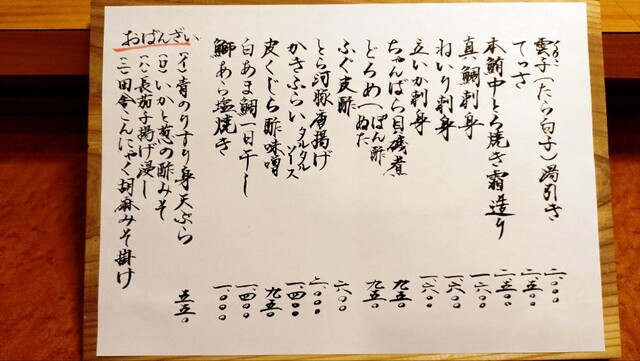 くもこ
雲子(たら白子)湯引き 二.〇〇〇
てっさ 二.五〇〇
本鮪中とろ焼き霜造り 二.五〇〇
真鯛刺身 一.六〇〇
ねいり刺身 一.六〇〇
立いか刺身 一.六〇〇
ちゃんばら貝磯煮 九五〇
どろめ(ぽん酢 ぬた 九五〇
ふぐ皮酢 六〇〇
とら河豚唐揚げ 二.〇〇〇
かきふらい タルタルソース 一.四〇〇
皮くじら酢味噌 九五〇
白あま鯛一日干し 一.四〇〇
鰤あら塩焼き 一.〇〇〇
おばんざい 五五〇
(イ)青のりすり身天ぷら
(ロ)いかと葱の酢みそ
(ハ)長茄子揚げ浸し
(ニ)田舎こんにゃく胡麻みそ掛け